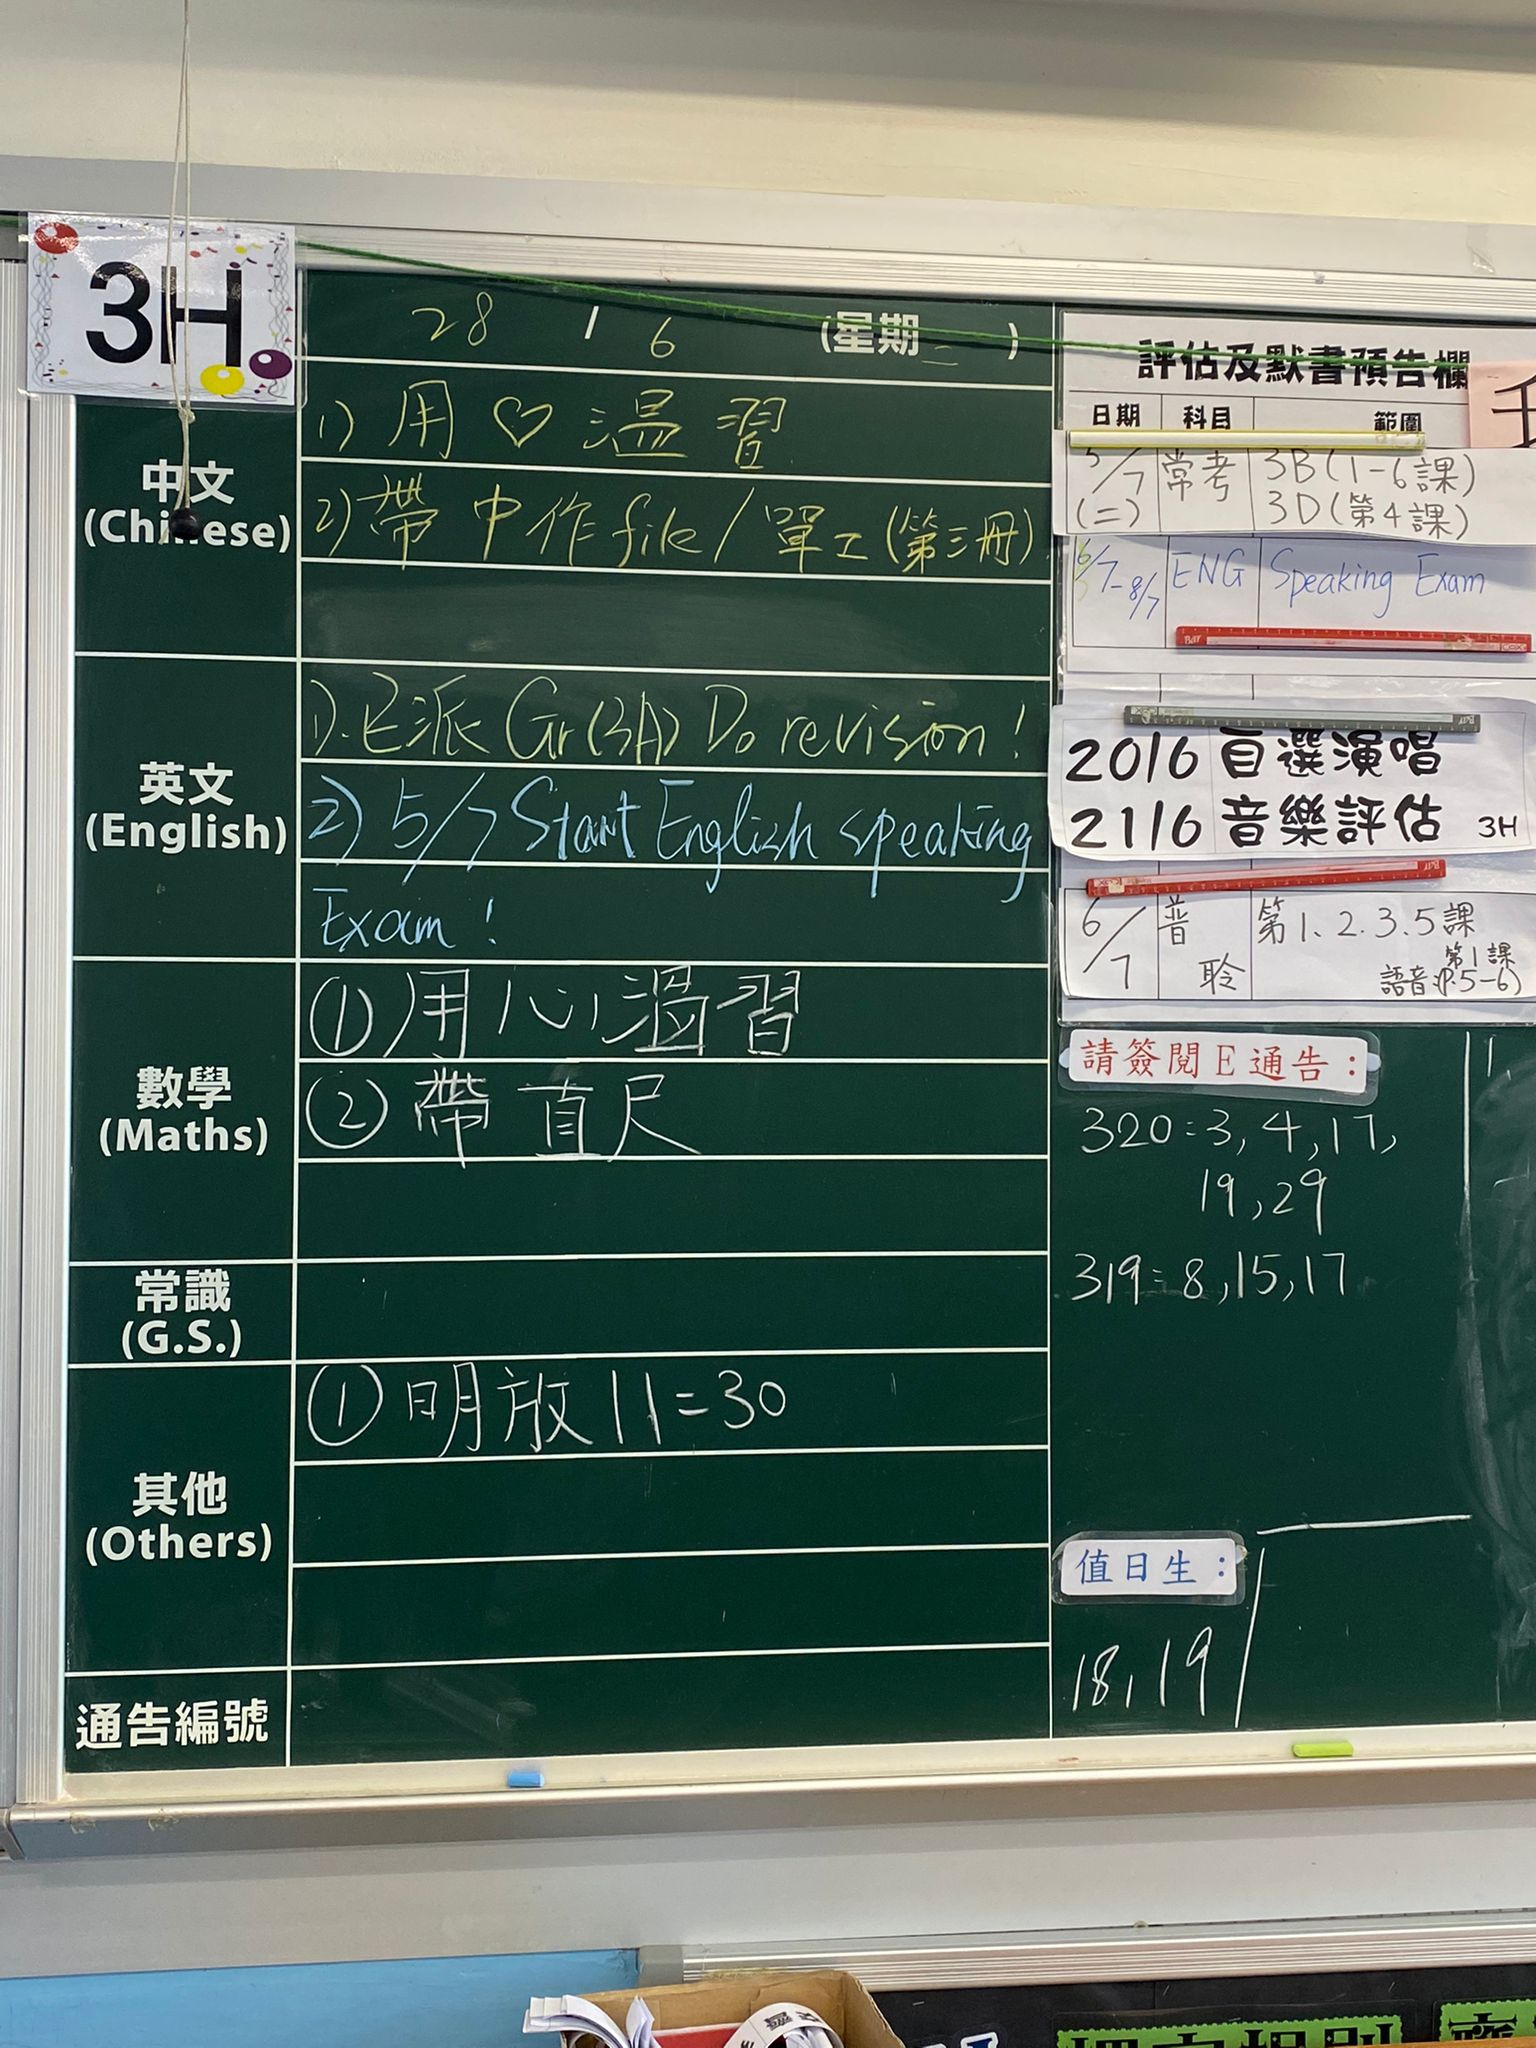 3H
28 / 6 (星期二)
中文
(Chinese)
1) 用♡温習
2) 帶中作file/單工(第三冊)
英文
(English)
1). 已派 Gr(3A) Do revision!
2) 5/7 Start English speaking
Exam!
數學
(Maths)
① 用心温習
② 帶直尺
常識
(G.S.)
其他
(Others)
① 明放 11:30
通告編號
評估及默書預告欄
日期 科目 範圍
5/7 (二) 常考 3B(1-6課)
3D(第4課)
/7-8/7 ENG Speaking Exam
20/6 自選演唱
21/6 音樂評估 3H
6/7 普聆 第1、2.3.5課
第1課
語音(P.5-6)
請簽閱E通告:
320:3, 4, 17,
19, 29
319:8, 15, 17
值日生:
18, 19